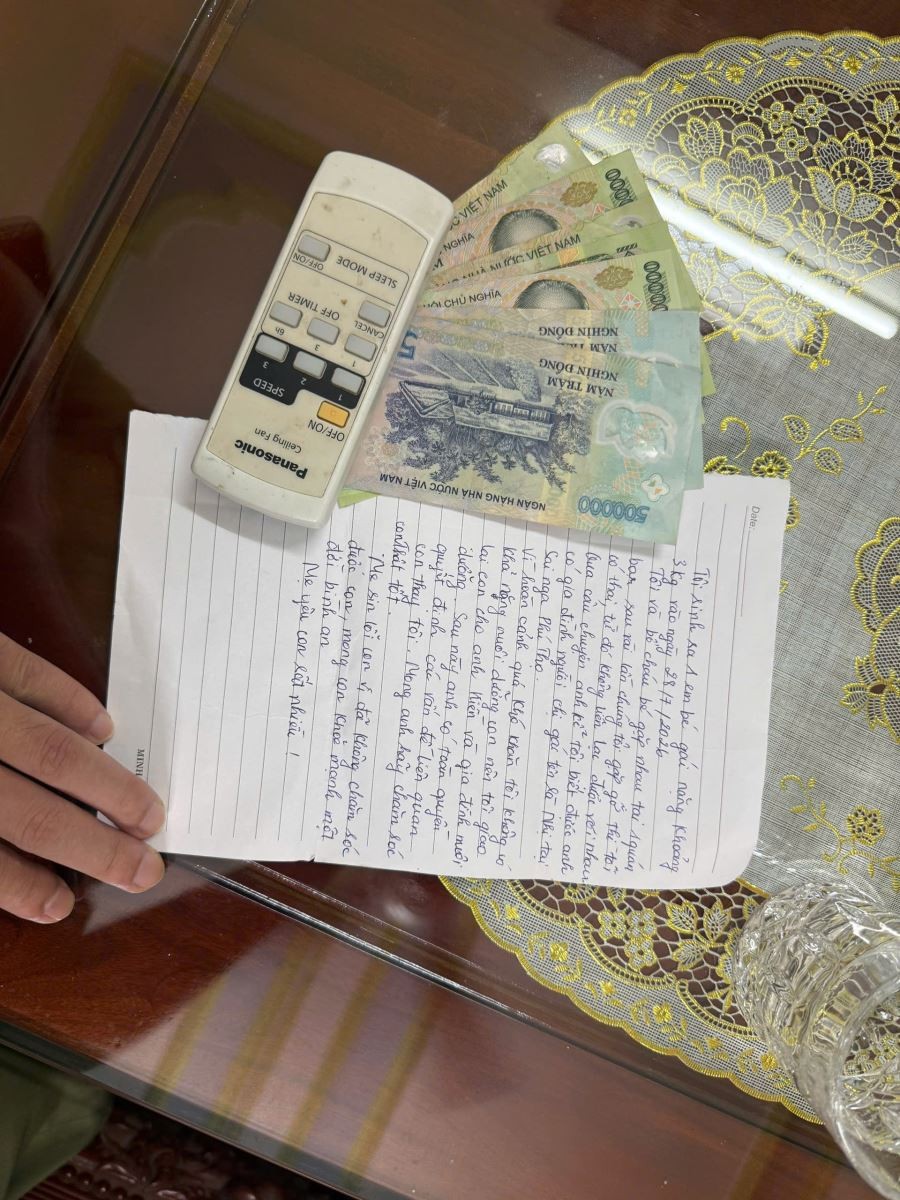 Date:
Tôi sinh ra 1 em bé gái nặng khoảng
3kg vào ngày 28/7/2026
Tôi và bố cháu bé gặp nhau tại quán
bar, sau vài lần chúng tôi gặp gỡ thì tôi
có thai, từ đó không liên lạc được với nhau
Qua câu chuyện anh kể tôi biết được anh
có gia đình người chị gái tên là Nhi tại
Sai nga Phú Thọ.
Vì hoàn cảnh quá khó khăn tôi không có
khả năng nuôi dưỡng con nên tôi giao
lại con cho anh Hiền và gia đình nuôi
dưỡng. Sau này anh có toàn quyền
quyết định các vấn đề liên quan
con thay tôi. Mong anh hãy chăm sóc
con thật tốt.
Mẹ sin lỗi con vì đã không chăm sóc
được con, mong con khoẻ mạnh một
đời bình an
Mẹ yêu con rất nhiều!
MINH
Panasonic
Ceiling Fan
OFF/ON
SPEED
1
2
3
OFF TIMER
1
3
6h
CANCEL
SLEEP MODE
OFF/ON
NGÂN HÀNG NHÀ NƯỚC VIỆT NAM
500000
NĂM TRĂM
NGHÌN ĐỒNG
NGHÌN ĐỒNG
HỘI CHỦ NGHĨA
NHÀ NƯỚC VIỆT NAM
NGHĨA
VIỆT NAM